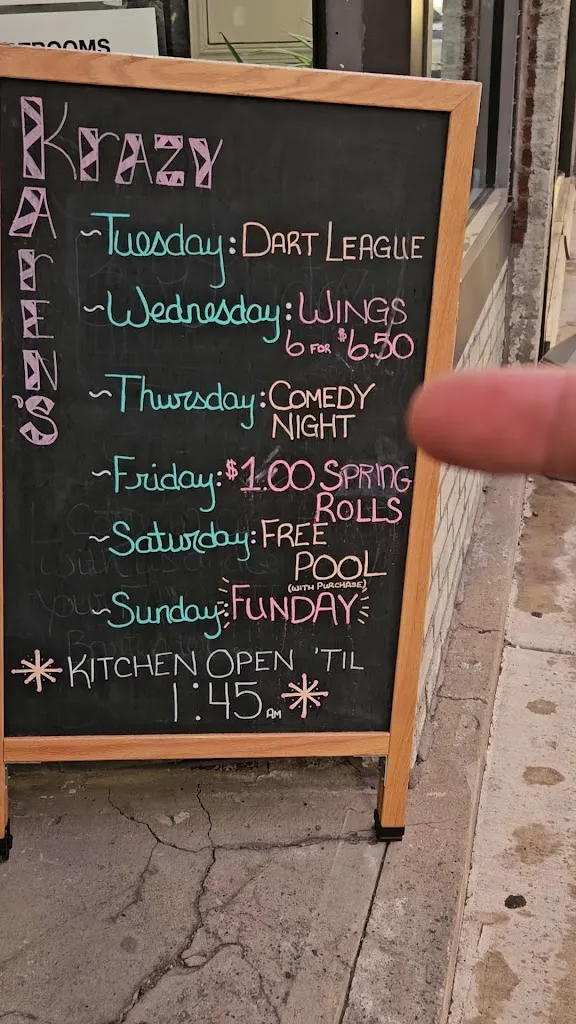 KRAZY
KAREN'S
~Tuesday: DART LEAGUE
~Wednesday: WINGS
6 FOR $6.50
~Thursday: COMEDY
NIGHT
~Friday: $1.00 SPRING
ROLLS
~Saturday: FREE
POOL
(WITH PURCHASE)
~Sunday: FUNDAY
KITCHEN OPEN 'TIL
1:45 AM